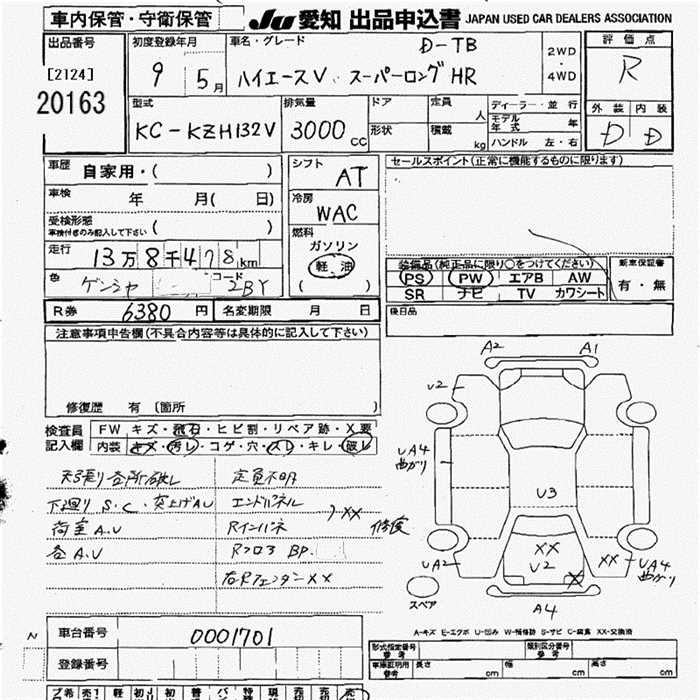 車内保管・守衛保管
JU 愛知 出品申込書 JAPAN USED CAR DEALERS ASSOCIATION
出品番号
[2124]
20163
初度登録年月
9 5月
車名・グレード
D-TB
ハイエースV スーパーロング HR
2WD
・
4WD
評価点
R
型式
KC-KZH132V
排気量
3000 cc
ドア
形状
定員 人
積載 kg
ディーラー・並行
モデル年式 年
ハンドル 左・右
外装 内装
D D
車歴 自家用・( )
車検 年 月( 日)
受検形態
車検付きのみ記入して下さい ( )
走行 13万8千478km
色 ゲンシャ コード 2BY
シフト AT
冷房 WAC
燃料
ガソリン
軽油
( )
セールスポイント(正常に機能するものに限ります)
装備品(純正品に限り○をつけてください)
PS PW エアB AW
SR ナビ TV カワシート
新車保証書
有・無
後日品
R券 6380 円 名変期限 月 日
注意事項申告欄(不具合内容等は具体的に記入して下さい)
修復歴 有 〔箇所 〕
検査員記入欄
FW キズ・飛石・ヒビ割・リペア跡・X要
内装 キズ・汚レ・コゲ・穴・スレ・キレ・破レ
天張り 破レ 定員不明
下廻り S.C.突上げAU エンドパネル
荷室 A.U Rインパネ XX 修復
各 A.U Rフロア BP.
右Rフェンダー XX
A2 A1
U2
UA4
曲がり
U3
XX
U2
X
UA2
XX UA4
曲がり
スペア
A4
A-キズ E-エクボ U-凹み W-補修跡 S-サビ C-腐食 XX-交換済
N
車台番号 0001701
登録番号
形式指定番号 参考
類別区分番号 参考
車庫証明用 参考
長さ cm 幅 cm 高さ cm